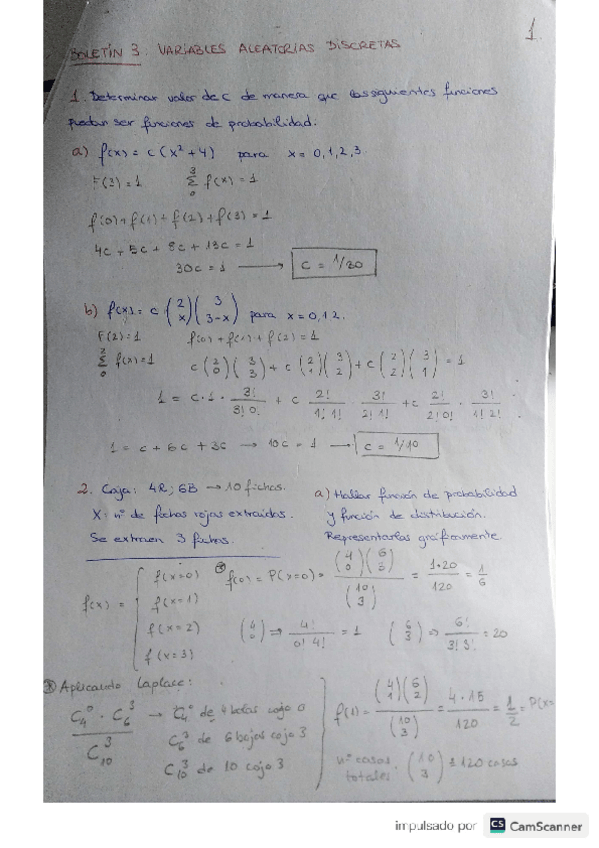 1.
BOLETÍN 3. VARIABLES ALEATORIAS DISCRETAS
1. Determinar valor de c de manera que las siguientes funciones
puedan ser funciones de probabilidad.
a) f(x) = c(x² + 4) para x = 0,1,2,3.
F(3) = 1 3 Σ 0 f(x) = 1
f(0) + f(1) + f(2) + f(3) = 1
4c + 5c + 8c + 13c = 1
30c = 1 → c = 1/30
b) f(x) = c · (2 x) (3 3-x) para x = 0,1 2.
F(2) = 1 f(0) + f(1) + f(2) = 1
2 Σ 0 f(x) = 1 c (2 0) (3 3) + c (2 1) (3 2) + c (2 2) (3 1) = 1
1 = c · 1 · 3!/3! 0! + c 2!/1! 1! · 3!/2! 1! + c 2!/2! 0! · 3!/1! 2!
1 = c + 6c + 3c → 10c = 1 → c = 1/10
2. Caja: 4R; 6B → 10 fichas.
X: nº de fichas rojas extraídas.
Se extraen 3 fichas.
a) Hallar función de probabilidad
y función de distribución.
Representarlas gráficamente
f(x) = { f(x=0)
f(x=1)
f(x=2)
f(x=3)
⊛ f(0) = P(x=0) = (4 0) (6 3) / (10 3) = 1·20/120 = 1/6
(4 0) ⇒ 4!/0! 4! = 1 (6 3) ⇒ 6!/3! 3! = 20
⊛ Aplicando Laplace:
C₄⁰ · C₆³ / C₁₀³ → C₄⁰ de 4 bolas cojo 0
C₆³ de 6 bojas cojo 3
C₁₀³ de 10 cojo 3.
f(1) = (4 1) (6 2) / (10 3) = 4·15/120 = 1/2 = P(x=
nº casos totales: (10 3) = 120 casos
impulsado por CS CamScanner